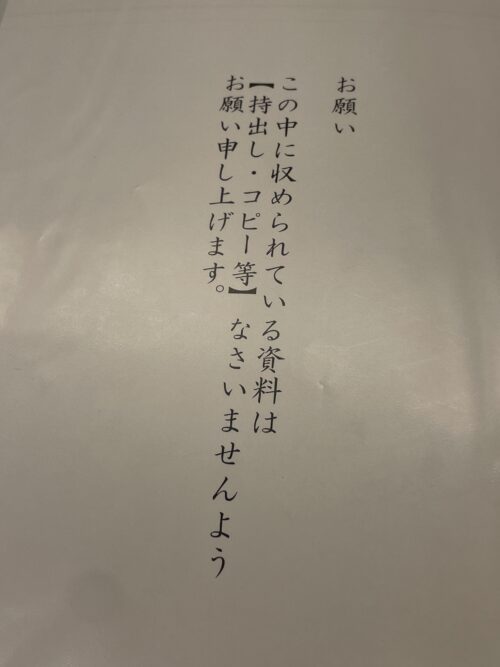 お願い
この中に収められている資料は
【持出し・コピー等】なさいませんよう
お願い申し上げます。